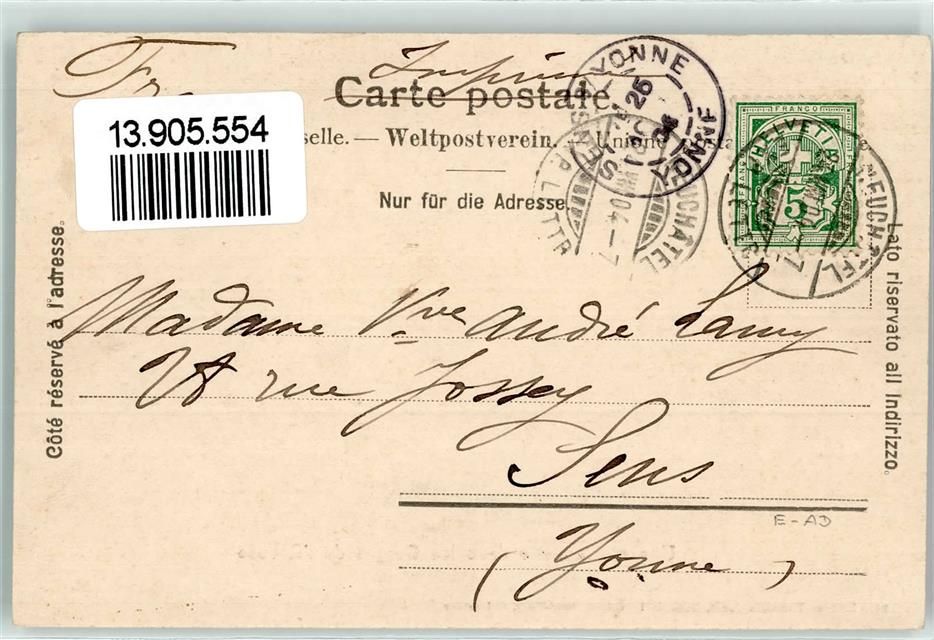 Imprimé
Carte postale.
13.905.554
selle. — Weltpostverein. — Unione
Nur für die Adresse.
Côté réservé à l'adresse.
Lato riservato all Indirizzo.
SENS YONNE
25
04
YONNE
NEUCHÂTEL
LETTR
04
FRANCO
HELVETIA
5
NEUCHÂTEL
Madame Vve André Lamy
rue Jossey
Sens
(Yonne)
E-AD